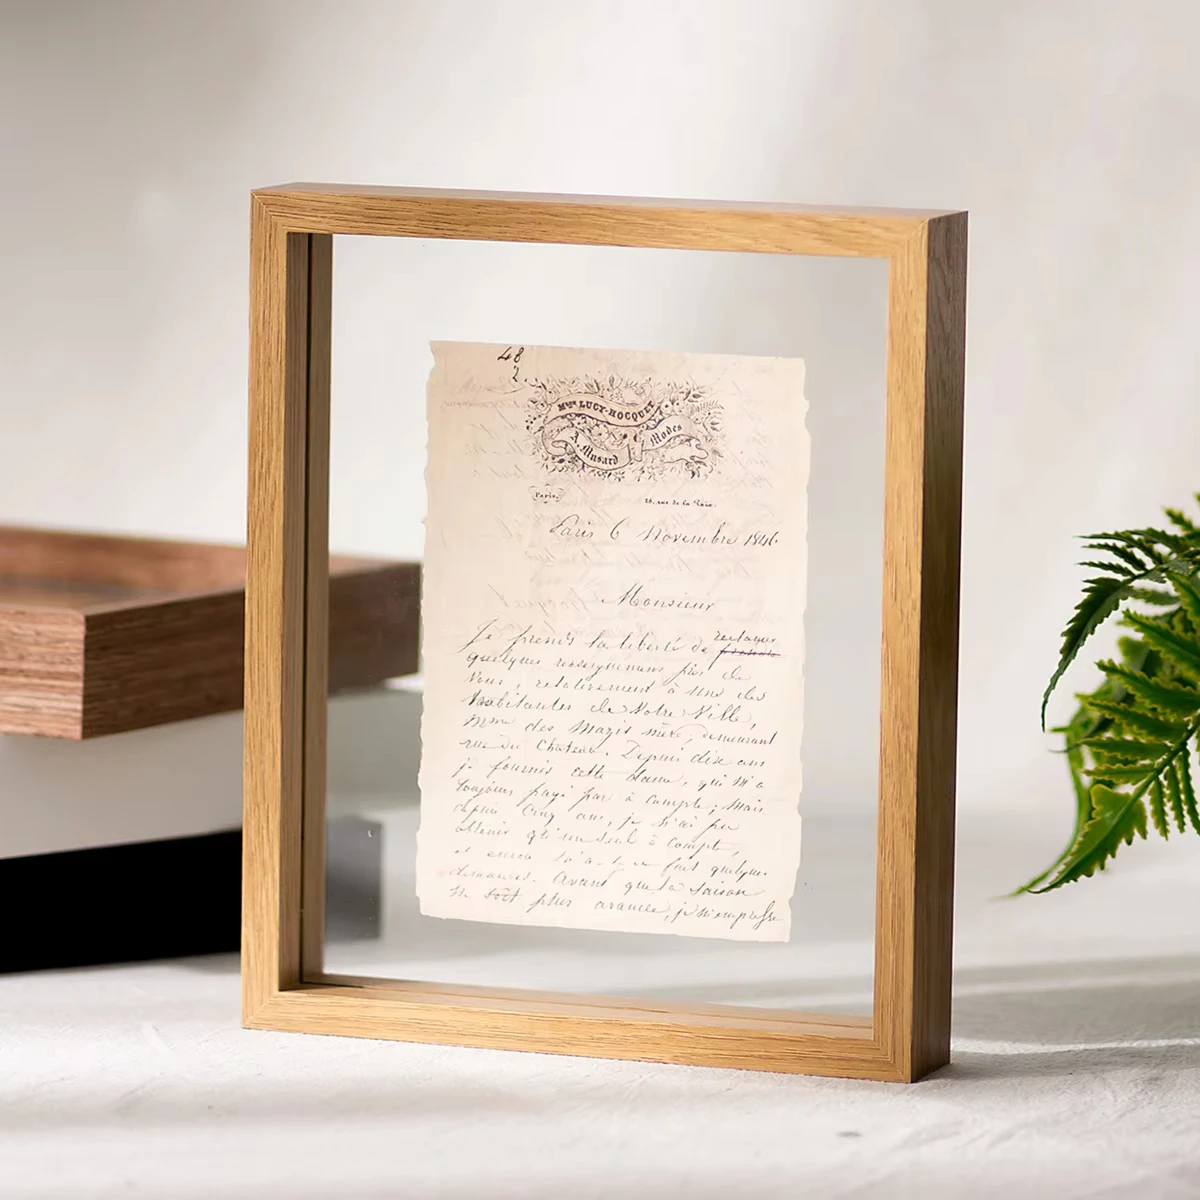 48
2
Mme LUCY-HOCQUET
A. Musard Modes
Paris.
16, rue de la Paix.
Paris 6 Novembre 1846
Monsieur
Je prends la liberté de reclamer
quelques renseignemens près de
Vous, relativement à Une des
habitantes de Votre Ville,
Mme des Mazis mère, demeurant
rue du Chateau. Depuis dix ans
je fournis cette dame, qui m'a
toujours payé par à compte; Mais
depuis Cinq ans, je n'ai pu
obtenir qu'un seul à compte,
et encore fait quelques
démarches. Avant que la saison
ne soit plus avancée, je m'empresse